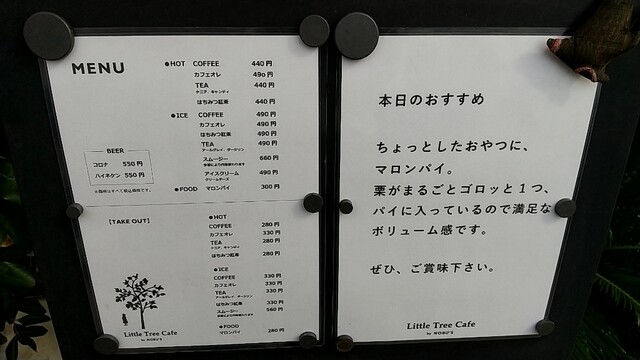 MENU
●HOT COFFEE 440円
カフェオレ 490円
TEA 440円
ケニア、キャンディ
はちみつ紅茶 440円
●ICE COFFEE 490円
カフェオレ 490円
はちみつ紅茶 490円
TEA 490円
アールグレイ、ダージリン
スムージー 660円
アイスクリーム 490円
●FOOD マロンパイ 300円
BEER
コロナ 550円
ハイネケン 550円
※価格はすべて税込価格です。
【TAKE OUT】
●HOT
COFFEE 280円
カフェオレ 330円
TEA 280円
ケニア、キャンディ
はちみつ紅茶 280円
●ICE
COFFEE 330円
カフェオレ 330円
TEA 330円
アールグレイ、ダージリン
はちみつ紅茶 330円
スムージー 560円
●FOOD
マロンパイ 280円
Little Tree Cafe
by NOBU'S
本日のおすすめ
ちょっとしたおやつに、
マロンパイ。
栗がまるごとゴロッと1つ、
パイに入っているので満足な
ボリューム感です。
ぜひ、ご賞味下さい。
Little Tree Cafe
by NOBU'S